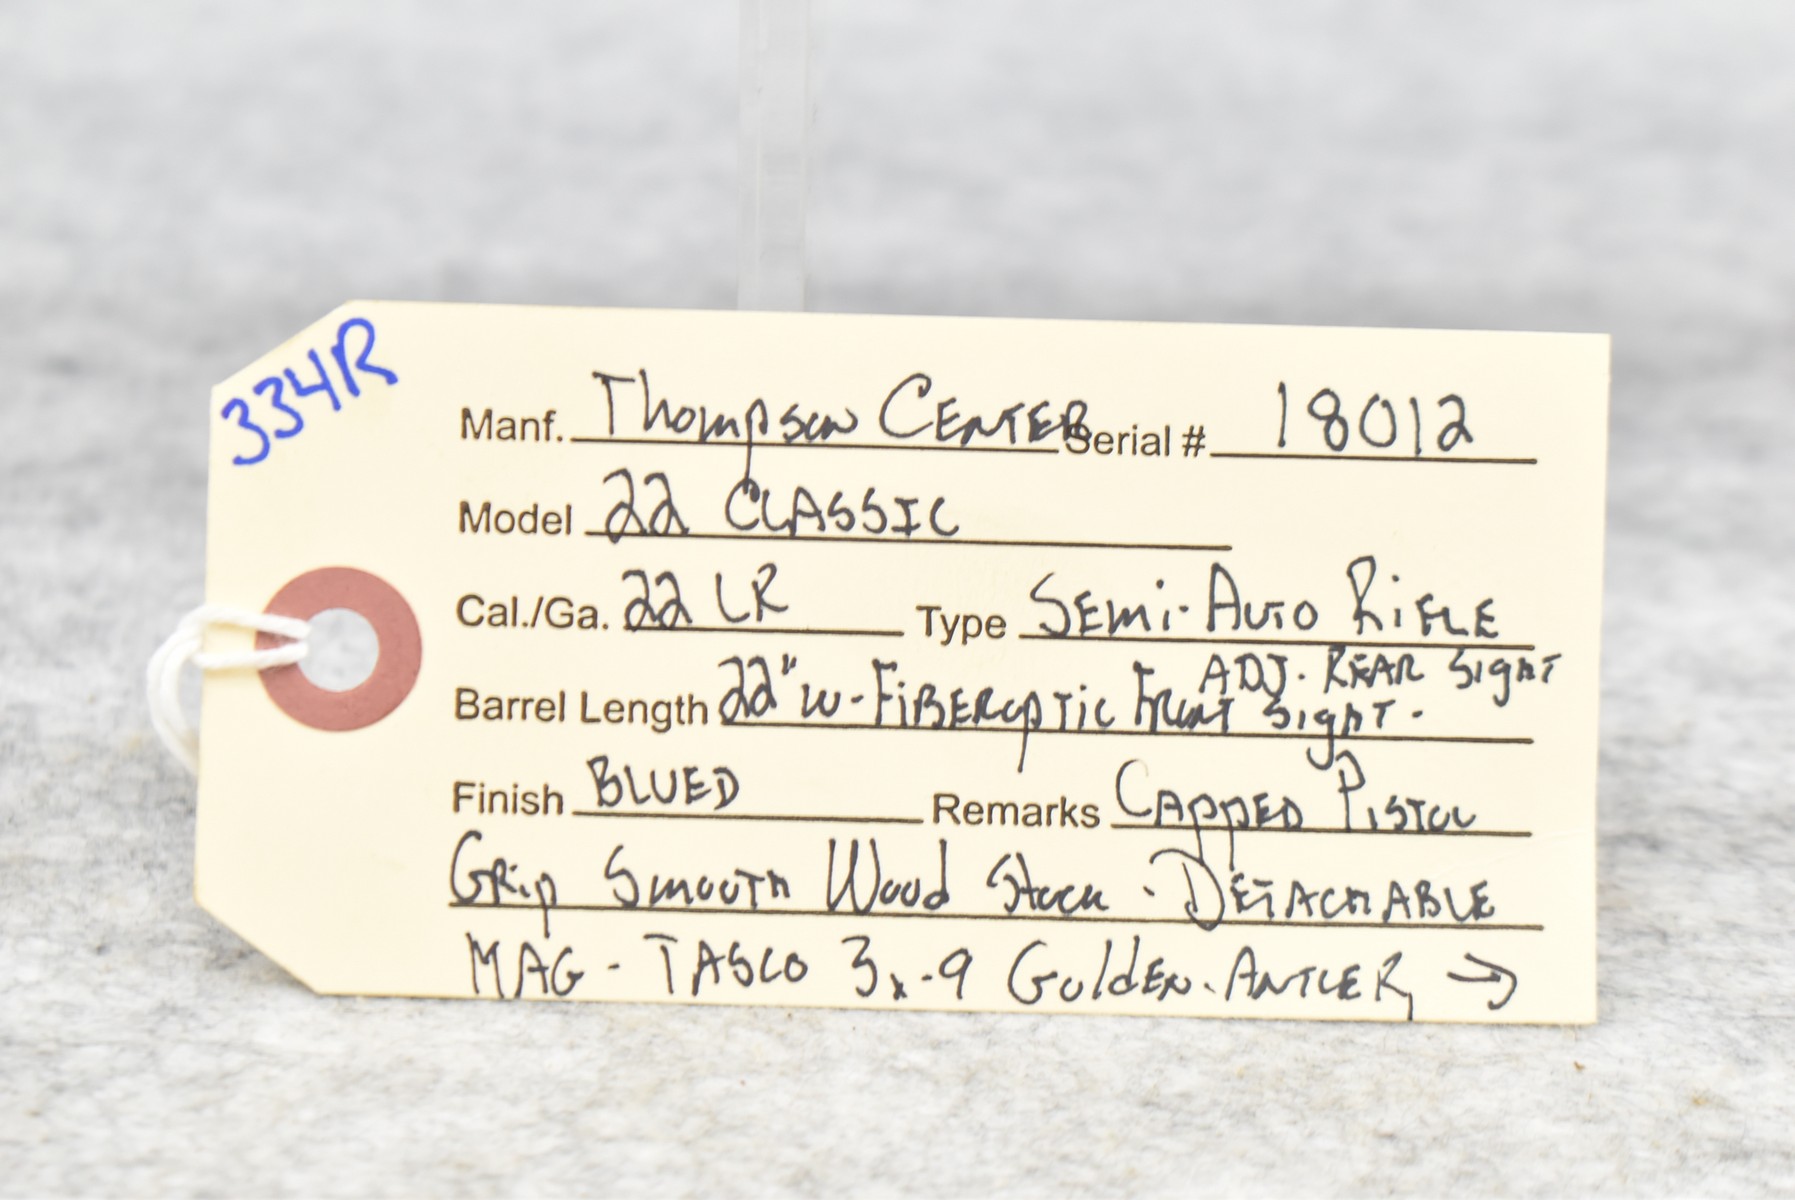 334R
Manf. Thompson CENTER Serial # 18012
Model 22 CLASSIC
Cal./Ga. 22 LR Type SEMi-AUTO RiFLE
ADJ. REAR SigHT
Barrel Length 22" W-FiBEROpTic FRONT SigHT.
Finish BLUED Remarks CAppED PISTOL
GRip SMOOTH Wood Stock - DETACHABLE
MAG - TASCO 3x-9 GoldEN.ANTLER →